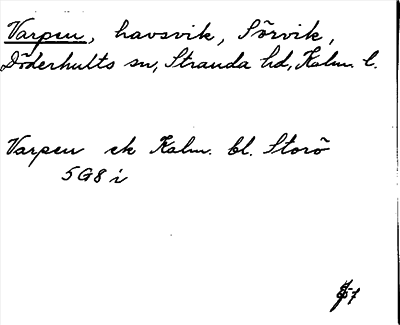 Varpen, havsvik, Sörvik,
Döderhults sn, Stranda hd, Kalm. l.
Varpen ek Kalm. bl. Storö
5G8i